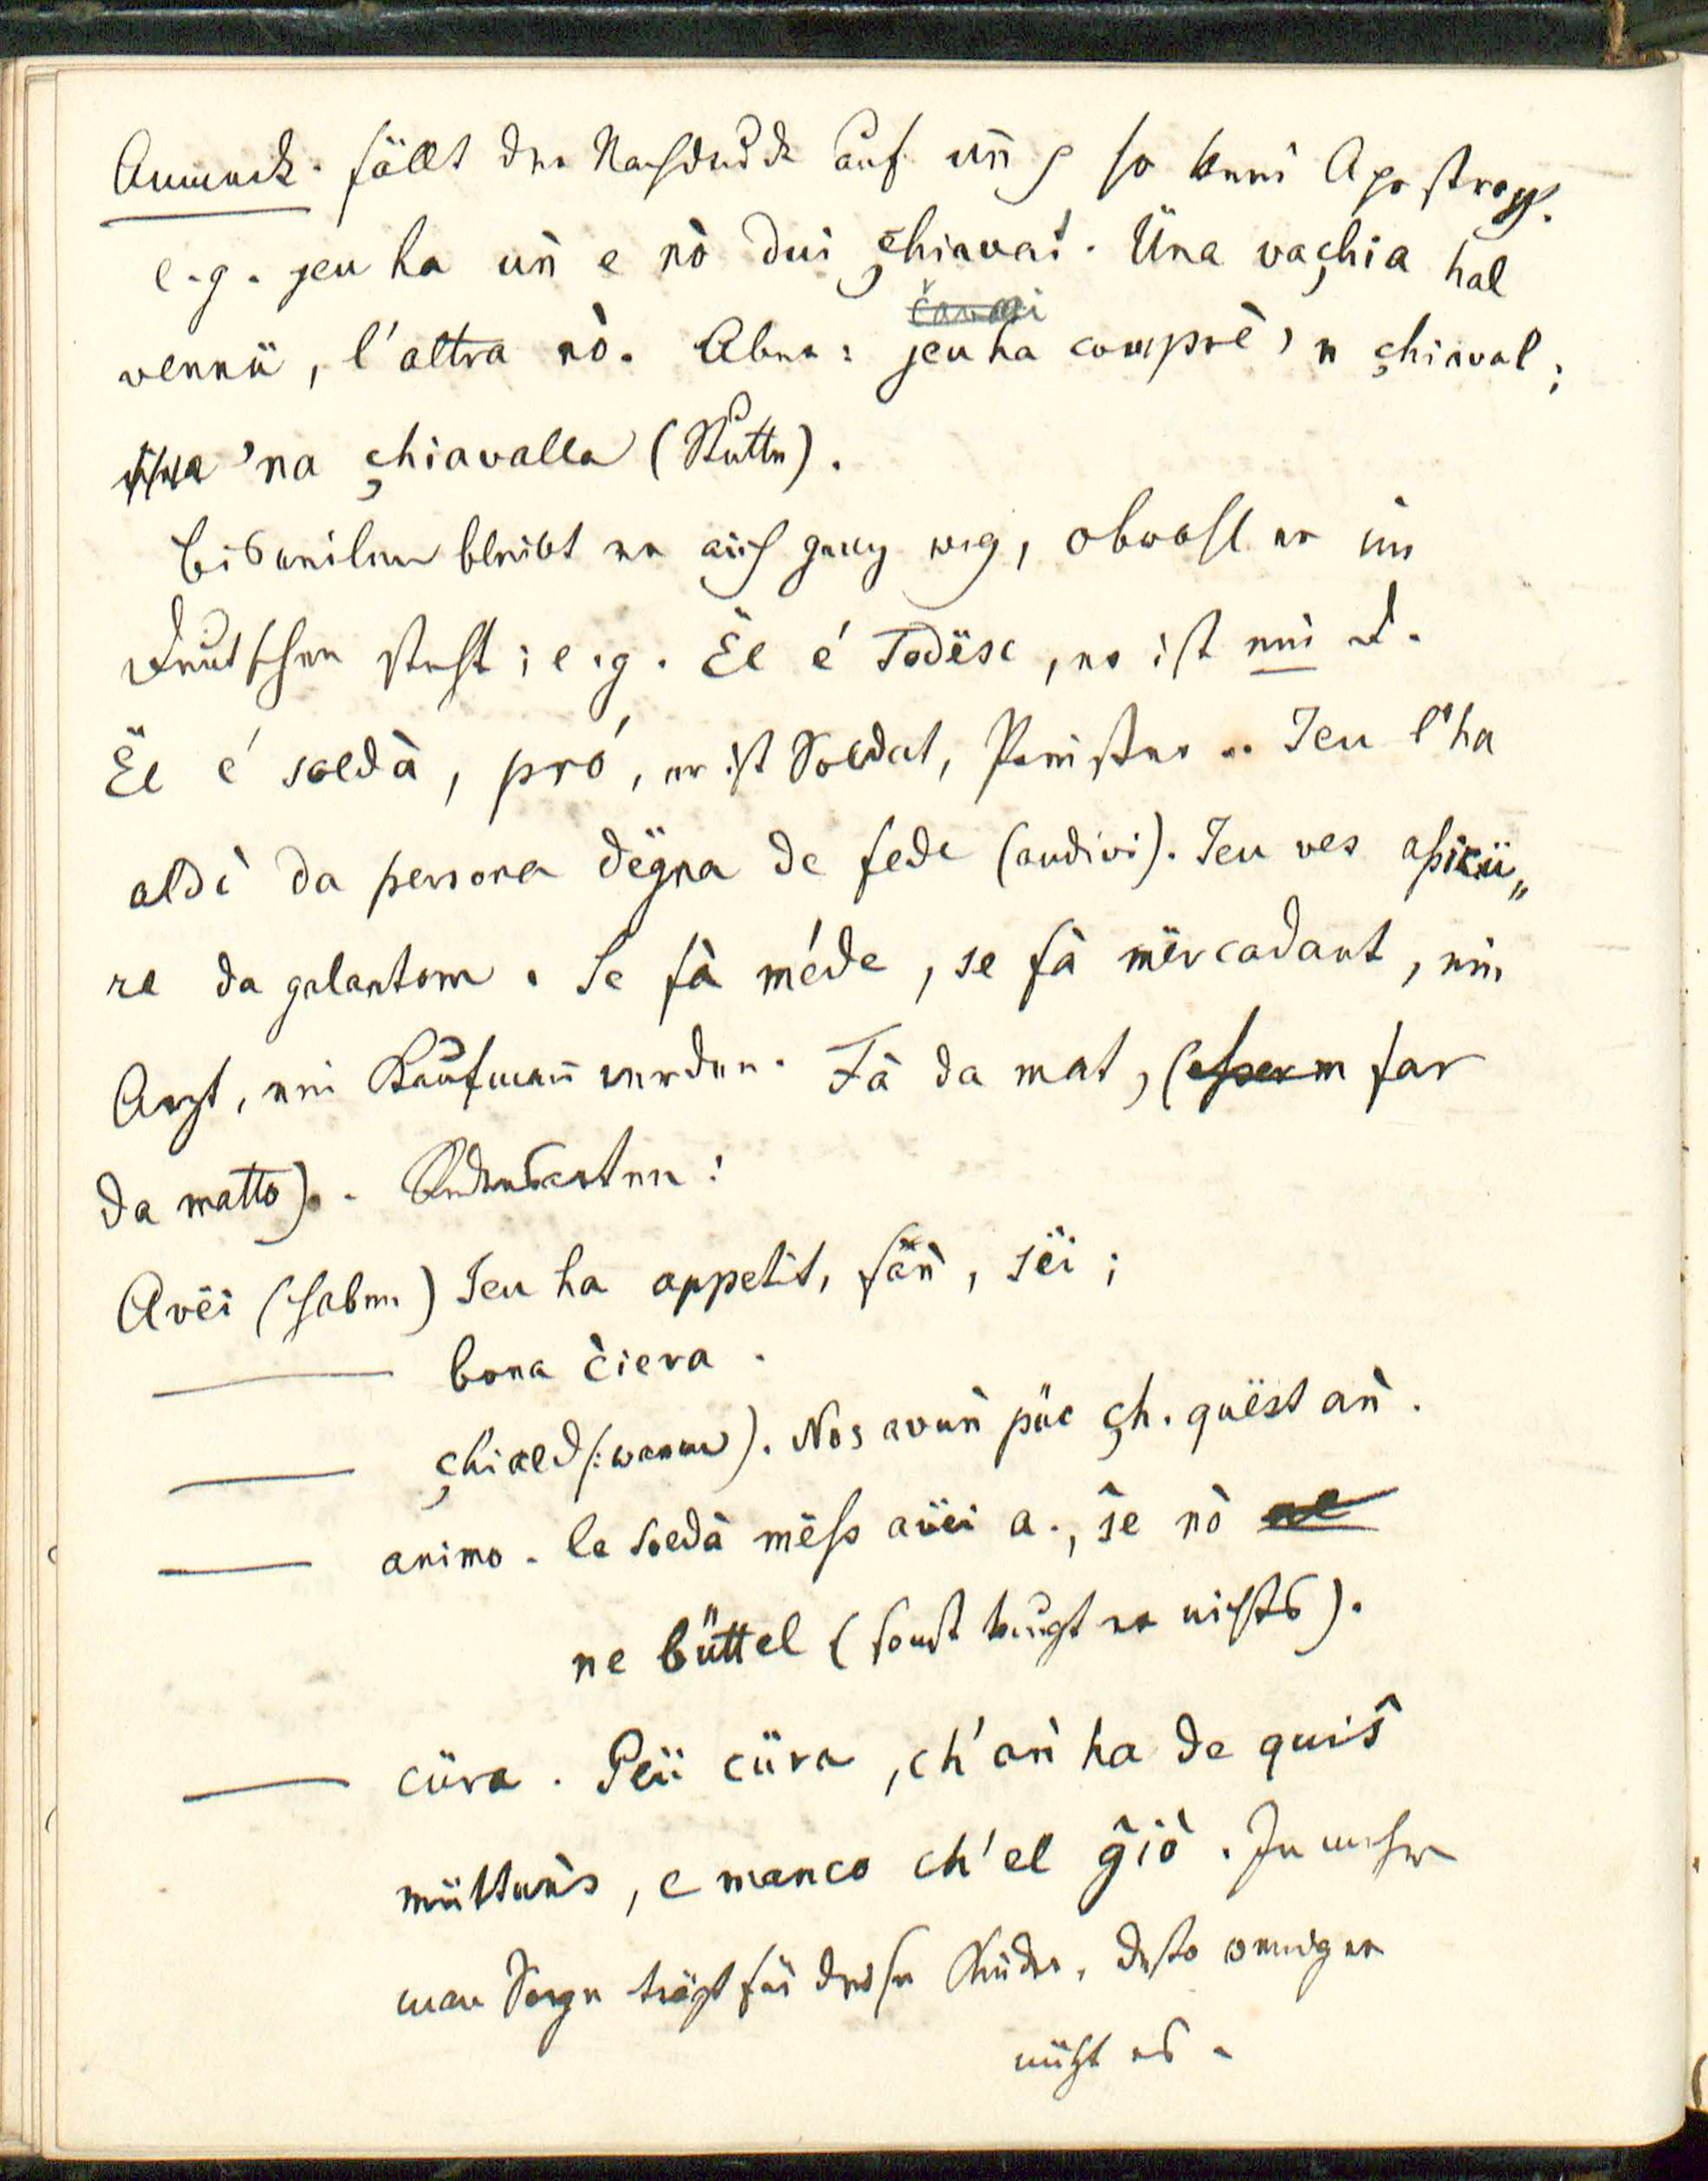 Anmerk. fällt der Nachdruck auf uǹ, so kein Apostroph.
e.g. jeu ha uǹ e nò dui çhiavai. Üna vaçhia hal
čavai
vennü, l'altra nò. Aber: jeu ha comprè 'n çhiaval;
üna 'na çhiavalla (Stutte).
Bisweilen bleibt er auch ganz weg, obwohl er im
Deutschen steht; e.g. Ël é Todësc, er ist ein D.
Ël é soldà, pró, er ist Soldat, Priester .. Jeu l'ha
aldì da persona dëgna de fede (audivi). Jeu ves assicü„
re da galantom. Se fà méde, se fà mërcadant, ein
Arzt, ein Kaufmañ werden. Fà da mat, (esserm far
da matto). Redensarten:
Avëi (haben) Jeu ha appetit, fañ, sëi;
——— bona čiera.
——— çhiald (: warm). Nos avuǹ püc çh. quëst aǹ.
——— animo. Le soldà mëss avëi a., ŝe nò ne
ne büttel (sonst taugt er nichts).
——— cüra. Plü cüra, ch'aǹ ha de quiŝ
müttuǹs, e manco ch'el ĝiò. Je mehr
man Sorge trägt für diese Kinder, desto weniger
nützt es.